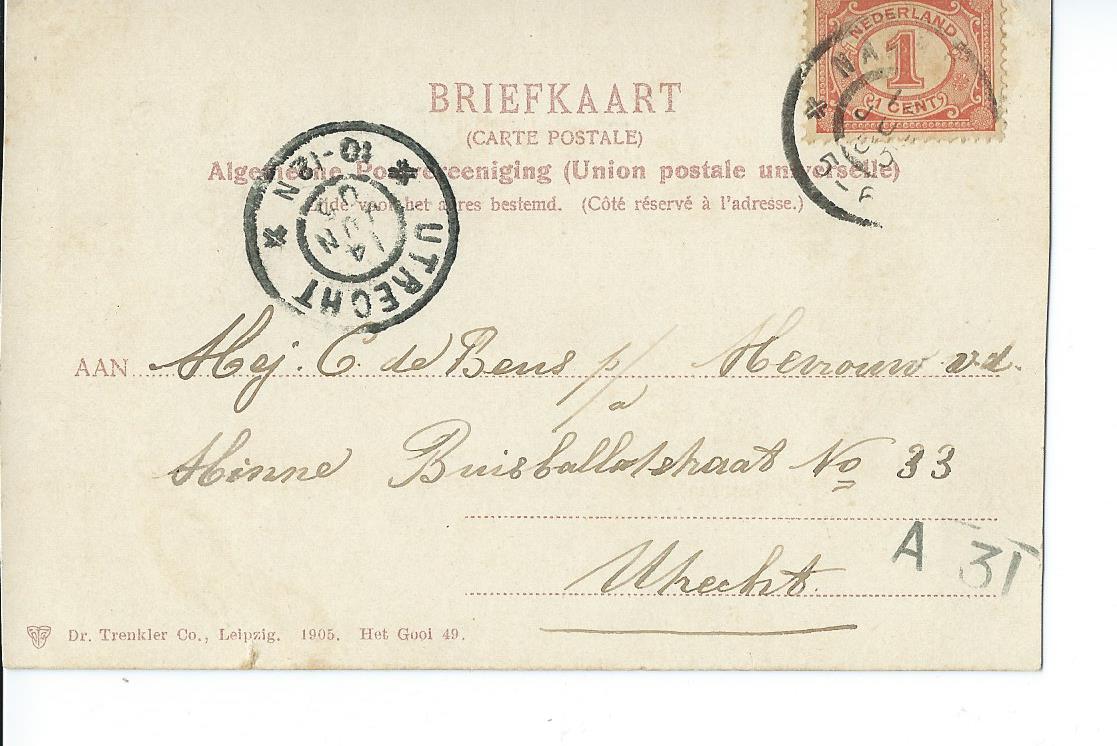 NEDERLAND
1
1 CENT
BRIEFKAART
(CARTE POSTALE)
Algemeene Postvereeniging (Union postale universelle)
Zijde voor het adres bestemd. (Côté réservé à l'adresse.)
UTRECHT
10-12 N
14 JUN
5-6
AAN Mej. C. de Bens p/a Mevrouw vd.
Hinne Buisballotstraat No 33
Utrecht.
A 31
Dr. Trenkler Co., Leipzig. 1905. Het Gooi 49.